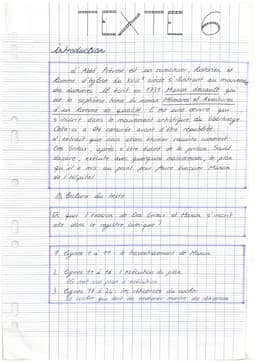 TEXTE 6
Introduction
L'Abbé Prévost est un romancier, historien, et
homme d'église du XVIIIe siècle s'illustrant au mouvement
des lumières. Il écrit en 1731 Manon Lescaut qui
est le septième tome du roman Mémoires et Aventures
d'un homme de qualité. C'est une œuvre qui
s'inscrit dans le mouvement artistique du libertinage.
Celle-ci a été censurée avant d'être republiée.
L'extrait que nous allons étudier raconte comment
Des Grieux, après s'être évadé de la prison Saint
Lazare, exécute avec quelques malfaiteurs, le plan
qu'il a mis au point pour faire évacuer Manon
de l'Hôpital
Lecture du texte
En quoi l'évasion de Des Grieux et Manon s'inscrit
elle dans le registre comique ?
1. Lignes 1 à 11 : le travestissement de Manon
2. Lignes 11 à 16 : l'exécution du plan
3. Lignes 17 à 24 : les réticences du cocher
Le cocher qui doit les emmener